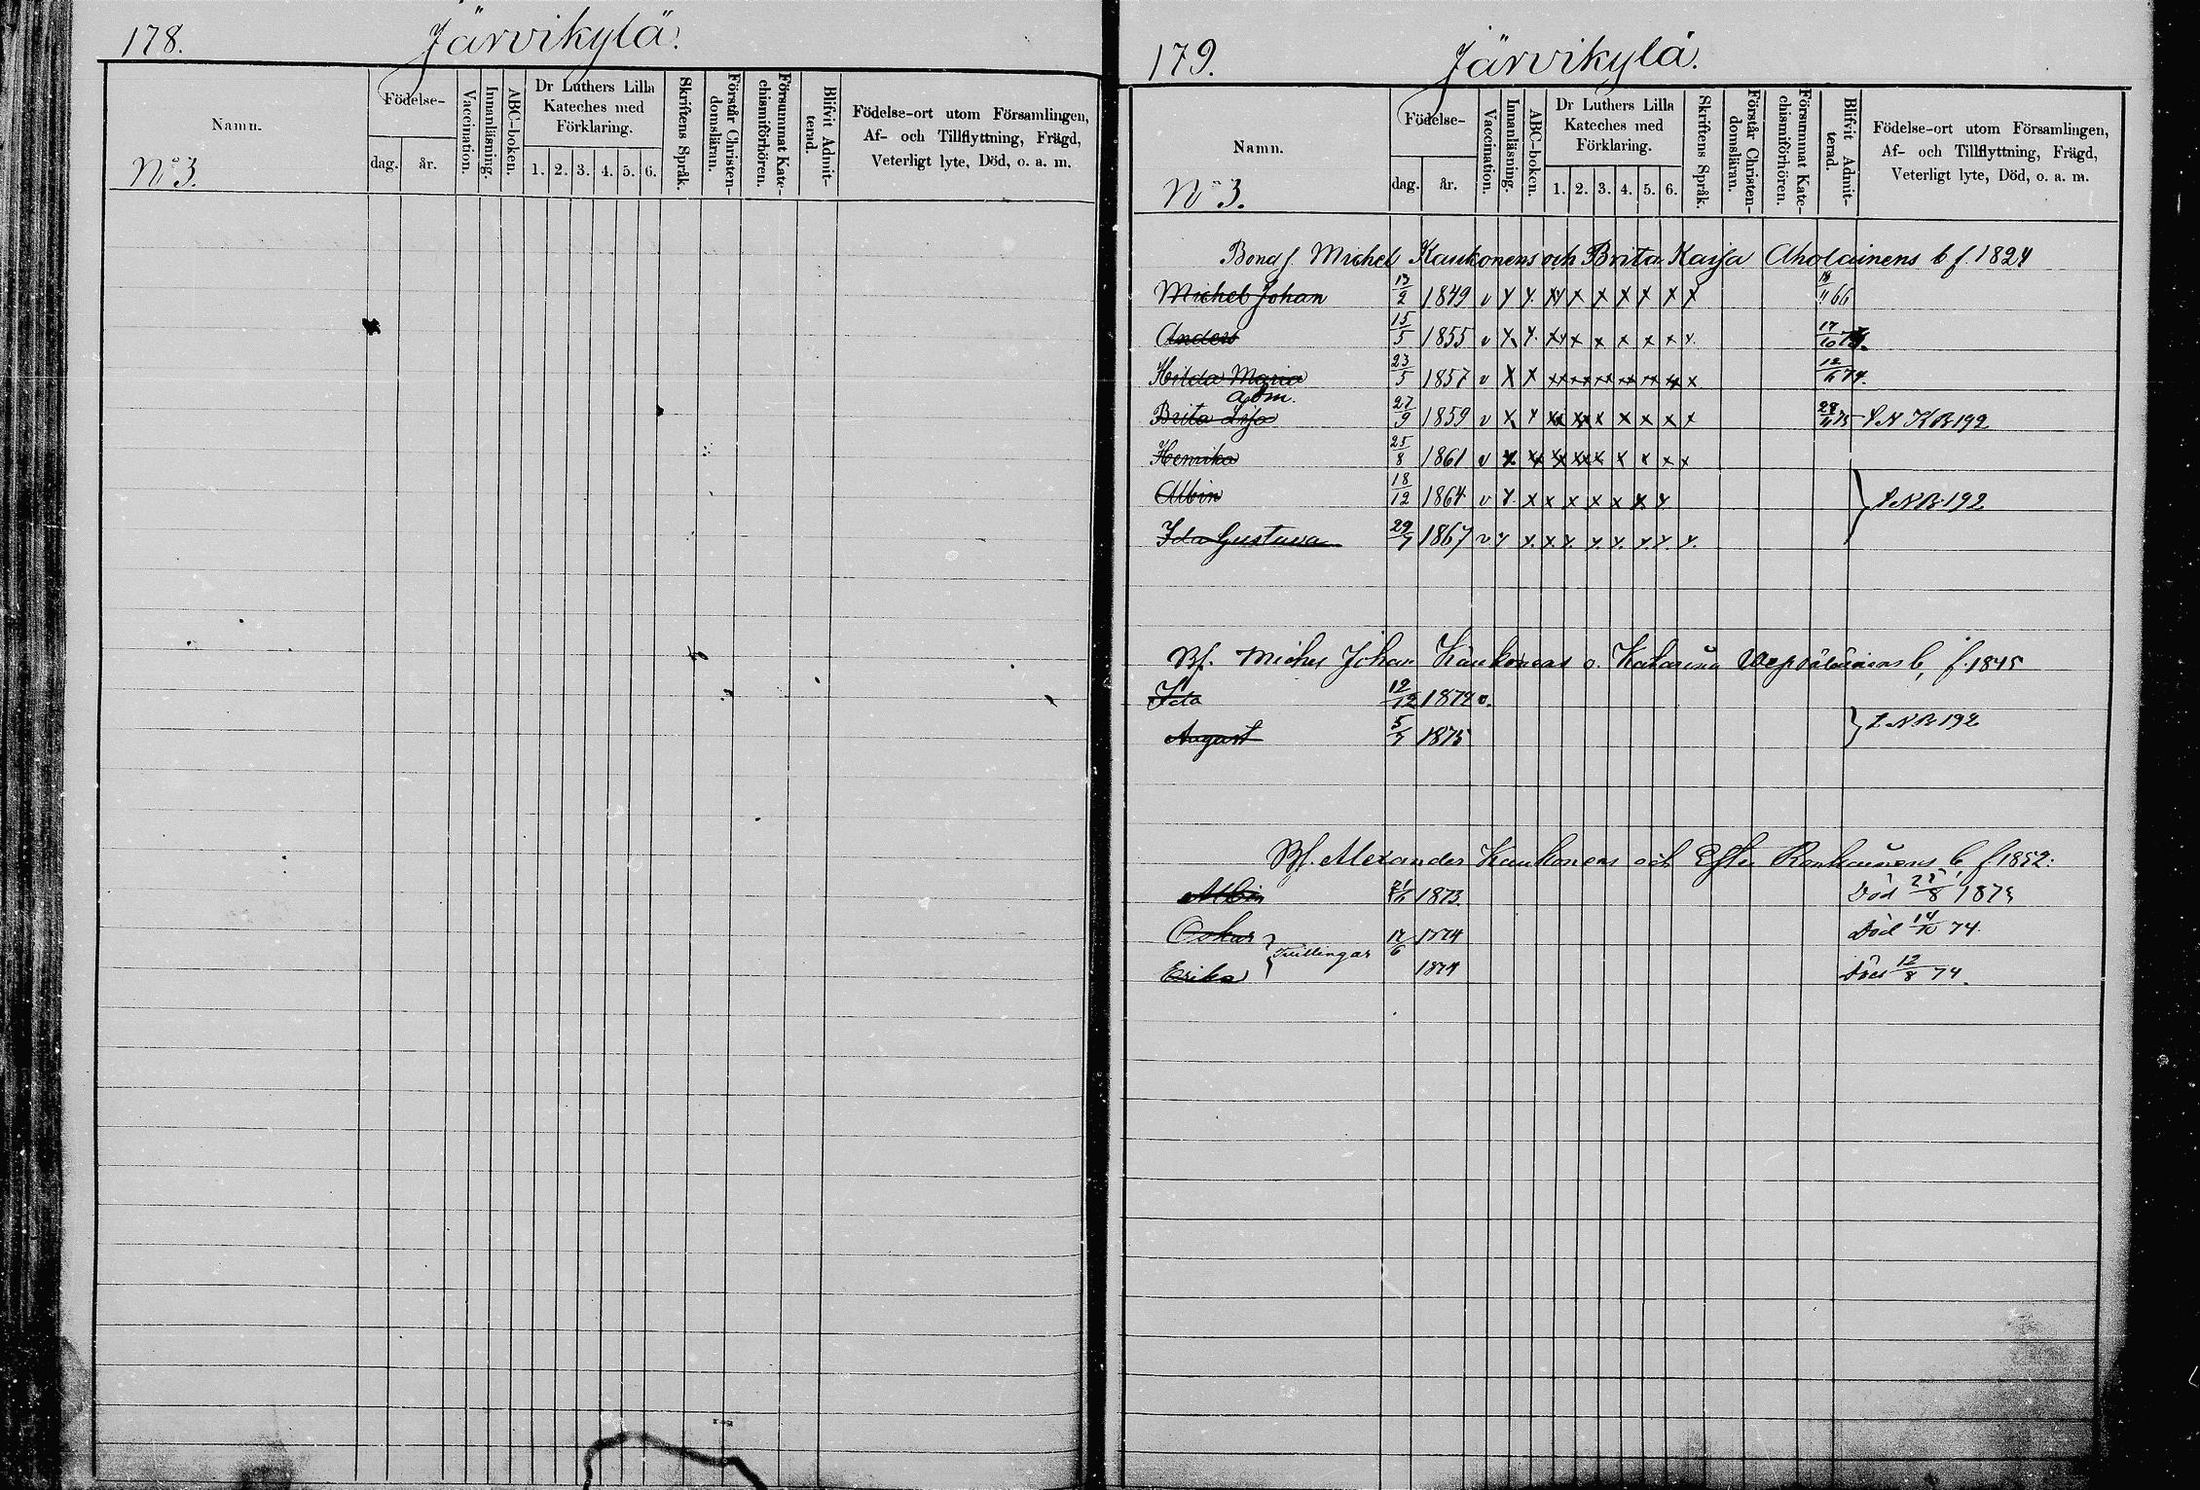 178. Järvikylä.
Namn. Födelse- Vaccination. Innanläsning. ABC-boken. Dr Luthers Lilla Kateches med Förklaring. Skriftens Språk. Förstår Christendomsläran. Försummat Katechismiförhören. Blifvit Admitterad. Födelse-ort utom Församlingen, Af- och Tillflyttning, Frägd, Veterligt lyte, Död, o. a. m.
dag. år. 1. 2. 3. 4. 5. 6.
N:o 3.
179. Järvikylä.
Namn. Födelse- Vaccination. Innanläsning. ABC-boken. Dr Luthers Lilla Kateches med Förklaring. Skriftens Språk. Förstår Christendomsläran. Försummat Katechismiförhören. Blifvit Admitterad. Födelse-ort utom Församlingen, Af- och Tillflyttning, Frägd, Veterligt lyte, Död, o. a. m.
dag. år. 1. 2. 3. 4. 5. 6.
N:o 3.
Michel Kaukonens och Brita Kaisa Aholainens b f. 1824
Michel Johan 13/2 1849 v x x xx x x x x x x 66
Anders 15/5 1855 v x x xx x x x x x x 17/10
Hilda Maria 23/5 1857 v x x xx xx xx xx xx xx x 12/6 74.
adm.
Brita 27/9 1859 v x x xx xx x x x x x N KB 192
Henrika 25/8 1861 v x xx xx xx x x x x x
Albin 18/12 1864 v x x x x x x x x } NB 192
Ida Gustava 29/7 1867 v x x x x x x x x x
Bf. Michel Johan Kaukonens o. Katarina b, f. 1845
Ida 12/12 1872 v.
August 5/7 1875 } NB 192
Bf. Alexander Kaukonens och Ester b f. 1852.
Albin 1873 Död 25/8 1873
Oskar } Tvillingar 17/6 1874 Död 14/10 74.
Erika 1874 Död 12/8 74.